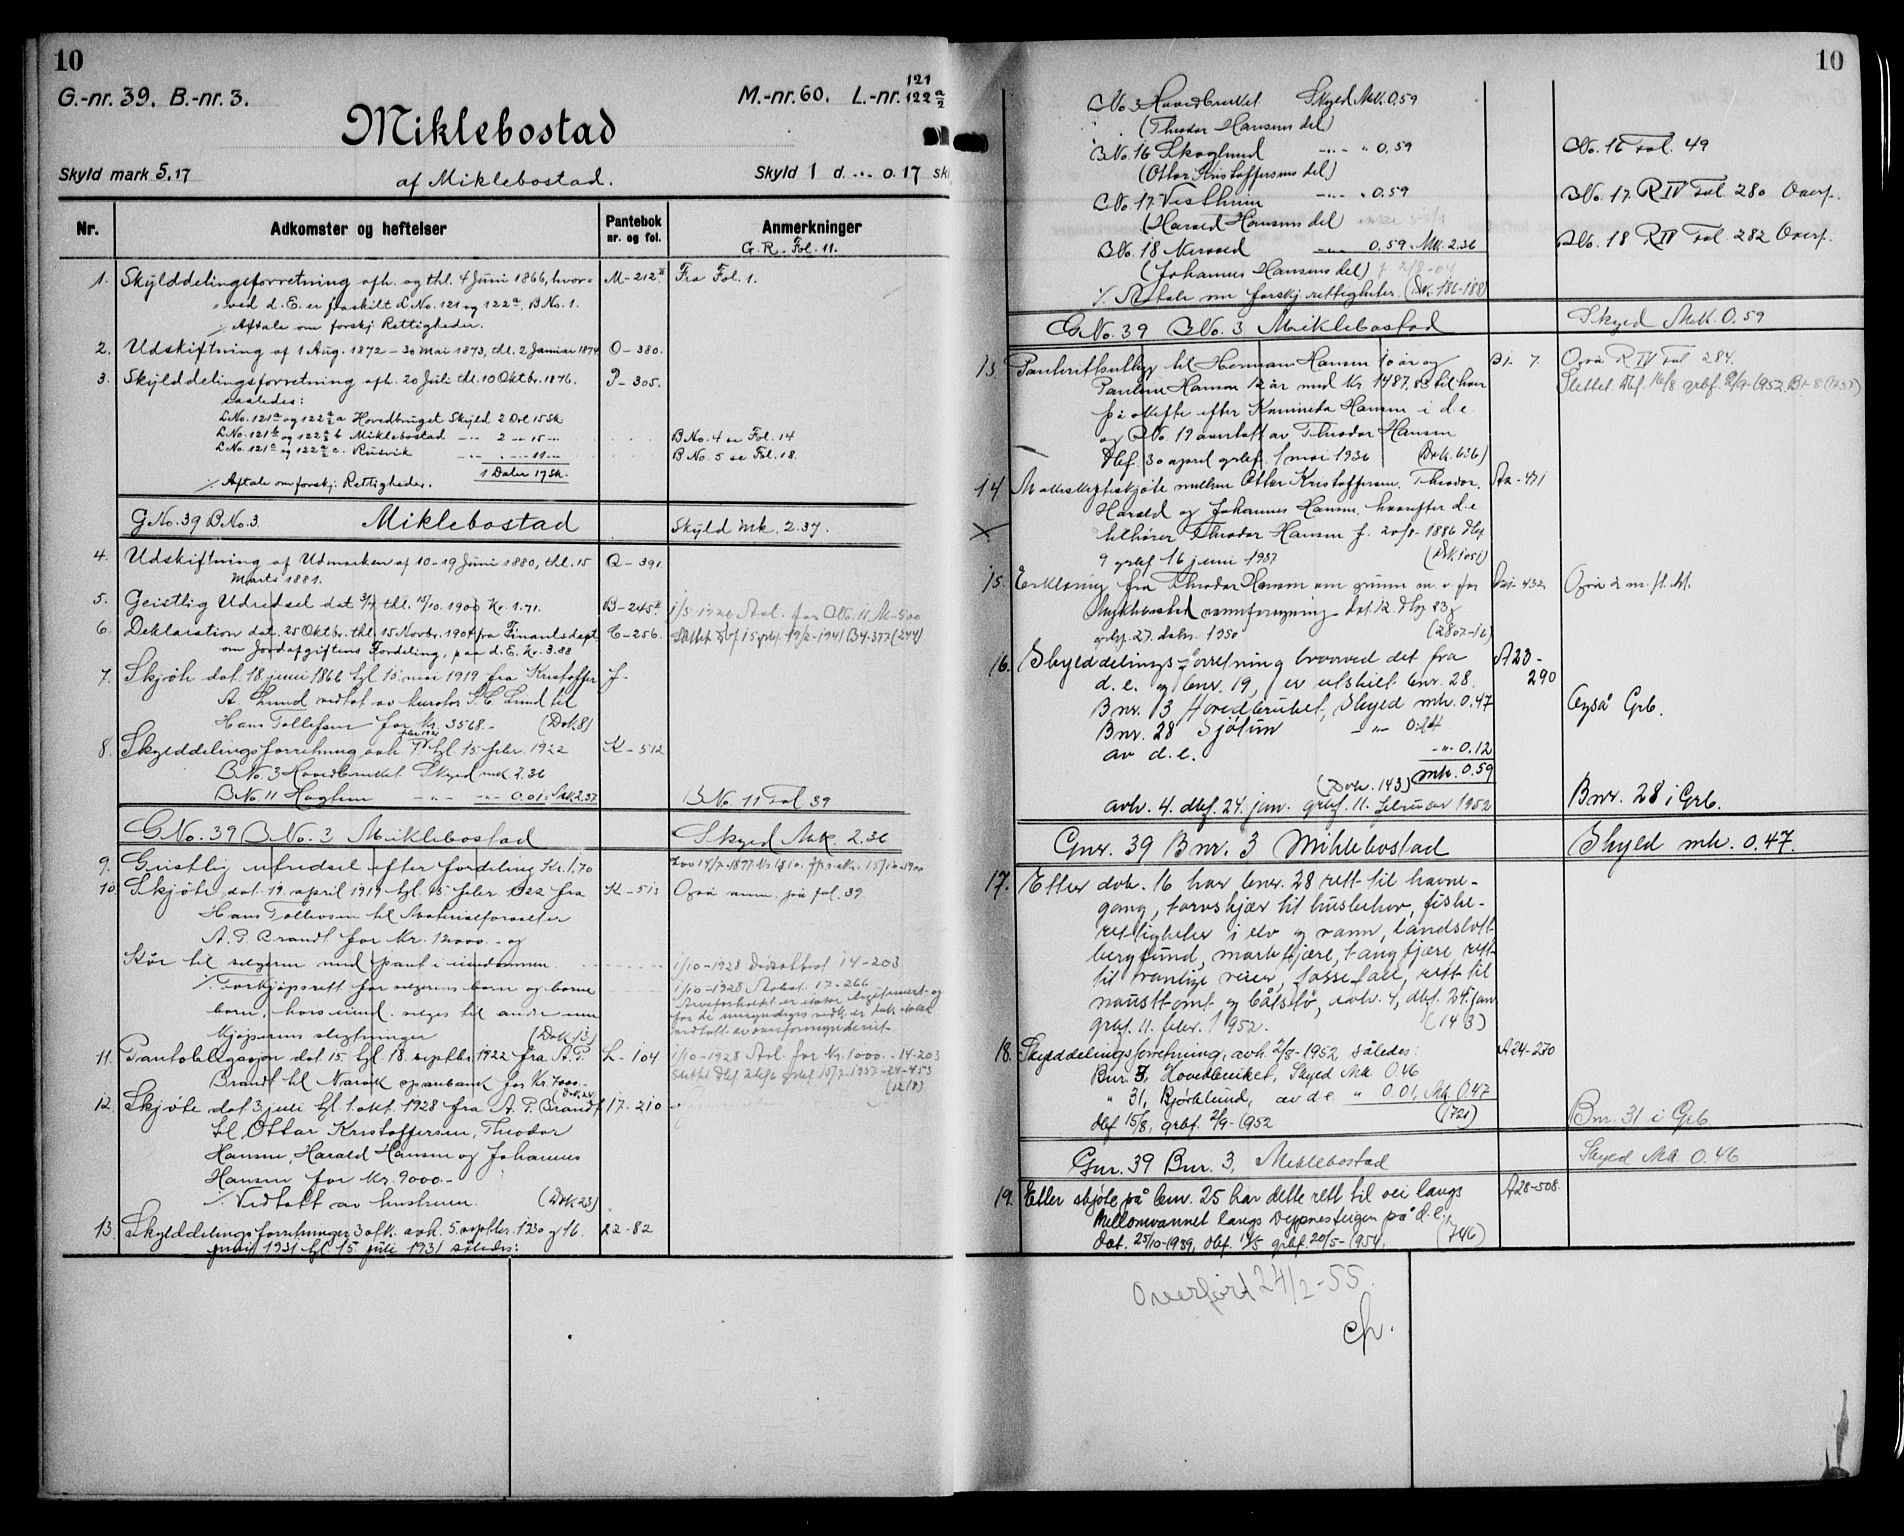 10
G.-nr. 39. B.-nr. 3.
M.-nr. 60. L.-nr. 121 122 a/2
Miklebostad
Skyld mark 5.17
af Miklebostad.
Skyld 1 d. -"- o. 17 sk
Nr.
Adkomster og heftelser
Pantebok nr. og fol.
Anmerkninger
G.R. Fol. 11.
1. Skylddelingsforretning afh. og thl. 4 Juni 1866, hvor- M-212 Fra Fol. 1.
ved d. E. er fraskilt L.No. 121 og 122a, B.No. 1.
./. Aftale om forskj. Rettigheder.
2. Udskiftning af 1 Aug. 1872 - 30 Mai 1873, thl. 2 Januar 1874 O-380.
3. Skylddelingsforretning afh. 20 Juli thl. 10 Oktbr. 1876. P-305.
saaledes:
L.No. 121a og 122 a/2 a Hovedbruget Skyld 2 Ort 15 Sk
L.No. 121b og 122 a/2 b Miklebostad -"- 2 -"- 15 -"- B No. 4 se Fol. 14
L.No. 121c og 122 a/2 c. Rusvik -"- -"- 11 -"- B No. 5 se Fol. 18.
1 Daler 17 Sk.
./. Aftale om forskj. Rettigheder.
G No. 39 B No. 3. Miklebostad Skyld mk. 2.37.
4. Udskiftning af Udmarken af 10-19 Juni 1880, thl. 15 Q-391
Marts 1881.
5. Geistlig Udredsel dat thl. 15/10. 1900 Kr. 1.71. B-245
6. Deklaration dat. 25 Oktbr. thl. 15 Novbr. 1904 fra Finantsdept E-256.
om Jordafgiftens Fordeling, paa d. E. Kr. 3.88
7. Skjøte dat. 18 juni 1866 tgl 15 mai 1919 fra Kristoffer J-
A. Lund vedtat av kurator S. C. Lund til
Hans Tollefsen for kr. 3568.- (Dok 8)
8. Skylddelingsforretning avh. tgl 15 febr. 1922 K-512
B No. 3 Hovedbruket Skyld mk 2.36
B No 11 Haghus -"- -"- 0.01: Mk 2.37 B No 11 Fol 39
G No. 39 B No. 3 Miklebostad Skyld Mk. 2.36
9. Geistlig utredsel efter fordeling Kr. 1.70
10. Skjøte dat. 19 april 1919 tgl 15 febr 1922 fra K-513 Også anm. på fol. 39
Hans Tollevsen til Materialforvalter
A. P. Brandt for Kr. 12000.- og
Kår til selgeren med pant i eiendommen.
./. Forkjøpsrett for selgerens barn og barne
barn, hvis eiend. selges til andre enn
kjøperens slegtninger (Dok 13)
11. Pantobligasjon dat 15. tgl 18. septbr. 1922 fra A. P. L-104 1/10-1928 Avl. for Kr. 1000.- 14-203
Brandt til Narvik sparebank for Kr. 7000.-
12. Skjøte dat 3 juli tgl. 1. okt. 1928 fra A. P. Brandt 17-210
til Ottar Kristoffersen, Theodor
Hansen, Harald Hansen og Johannes
Hansen for Kr. 9000.-
./. Vedtatt av hustruen. (Dok 23)
13. Skylddelingsforretninger 3 stk. avh. 5. septbr. 1930 og 16. 22-82
juni 1931 tgl 15 juli 1931 således:
10
B No 3 Hovedbruket Skyld Mk. 0.59
(Theodor Hansens del)
B No. 16 Skoglund -"- " 0.59 B No. 16 Fol. 49
(Ottar Kristoffersens del)
B No. 17 Vestheim -"- " 0.59 B No. 17 R IV Fol 280 Overf.
(Harald Hansens del)
B No. 18 Nervoed -"- 0.59 Mk. 2.36 B No. 18 R IV Fol. 282 Overf.
(Johannes Hansens del)
./. Avtale om forskj. rettigheter. (Dok. 186-188)
G No. 39 B No. 3 Miklebostad Skyld Mk. 0.59
13. Panterettsutlegg til Herman Hansen 10 år og B1- 7. Også R IV Fol 284.
Pauline Hansen 12 år med Kr. 1487,83 til hver
på skifte efter Hansen i d.e
og B No. 19 overtatt av Theodor Hansen
Dbf. 30 april grbf. 1 mai 1936 (Dok. 636)
14. Makeskifteskjøte mellem Ottar Kristoffersen, Theodor, A2-471
Harald og Johannes Hansen, hvorefter d.e
tilhører Theodor Hansen f. 20/8-1886 dbf
9 grbf 16 juni 1937 (Dok 1051)
15. Erklæring fra Theodor Hansen om grunn m.v. for Også 2 m. fl. bl.
Myklebostad vannforsyning dat. 12 dbf 23 og
grbf. 27. 1950 (2807-16)
16. Skylddelingsforretning hvorved det fra A23-290
d.e. og bnr. 19, er utskilt bnr. 28.
Bnr. 3 Hovedbruket, Skyld mk. 0.47 Også Grb.
Bnr. 28 Sjøtun -"-
av d.e. -"- 0.12
mk. 0.59
(Dok. 143)
avh. 4. dbf. 24. jan. grbf. 11. februar 1952 Bnr. 28 i Grb.
Gnr. 39 Bnr. 3 Miklebostad Skyld mk. 0.47.
17. Etter dok. 16 har bnr. 28 rett til havne-
gang, torvskjær til husbehov, fiske-
rettigheter i elv og vann, landslott
berggrund, markefjære, tangfjære, rett
til vanlige veier, fossefall, rett til
nausttomt og båtstø, avh. 4, dbf. 24. jan
grbf. 11. febr. 1952. (143)
18. Skylddelingsforretning, avh. 2/8-1952 således: A24-270
Bnr 3, Hovedbruket, Skyld Mk 0.46
" 31, Bjørklund, av d.e. " 0.01, Mk 0.47
dbf 15/8, grbf. 2/9-1952 (721) Bnr. 31 i Grb
Gnr. 39 Bnr. 3, Miklebostad Skyld Mk 0.46
19. Etter skjøte på bnr. 25 har dette rett til vei langs A28-508.
Mellomvannet langs Deppnesteigen på d.e.,
Dat. 25/10-1939, dbf. 14/5 grbf. 20/5-1954. (746)
Overført 24/2-55.